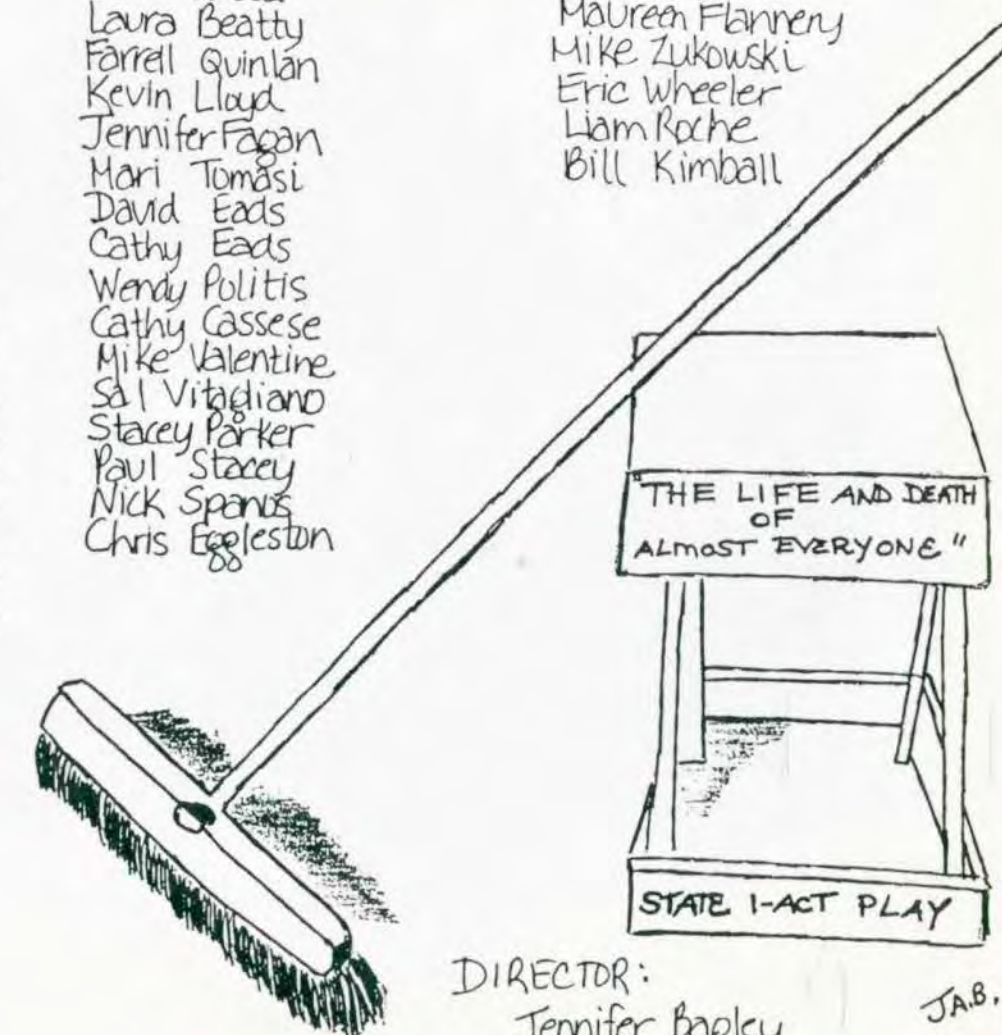 Laura Beatty
Farrell Quinlan
Kevin Lloyd
Jennifer Fagan
Mari Tomasi
David Eads
Cathy Eads
Wendy Politis
Cathy Cassese
Mike Valentine
Sal Vitagliano
Stacey Parker
Paul Stacey
Nick Spanos
Chris Eggleston
Maureen Flannery
Mike Zukowski
Eric Wheeler
Liam Roche
Bill Kimball
"THE LIFE AND DEATH
OF
ALMOST EVERYONE"
STATE 1-ACT PLAY
DIRECTOR:
Jennifer Bagley
J.A.B.